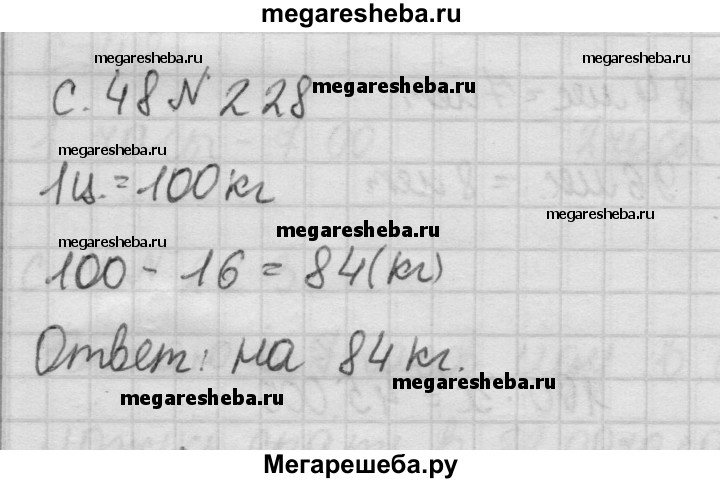 megaresheba.ru
megaresheba.ru
с. 48 N 228
megaresheba.ru
megaresheba.ru
1ц. = 100 кг
megaresheba.ru
megaresheba.ru
megaresheba.ru
100 - 16 = 84 (кг)
Ответ: на 84 кг.
megaresheba.ru
megaresheba.ru
Мегарешеба.ру